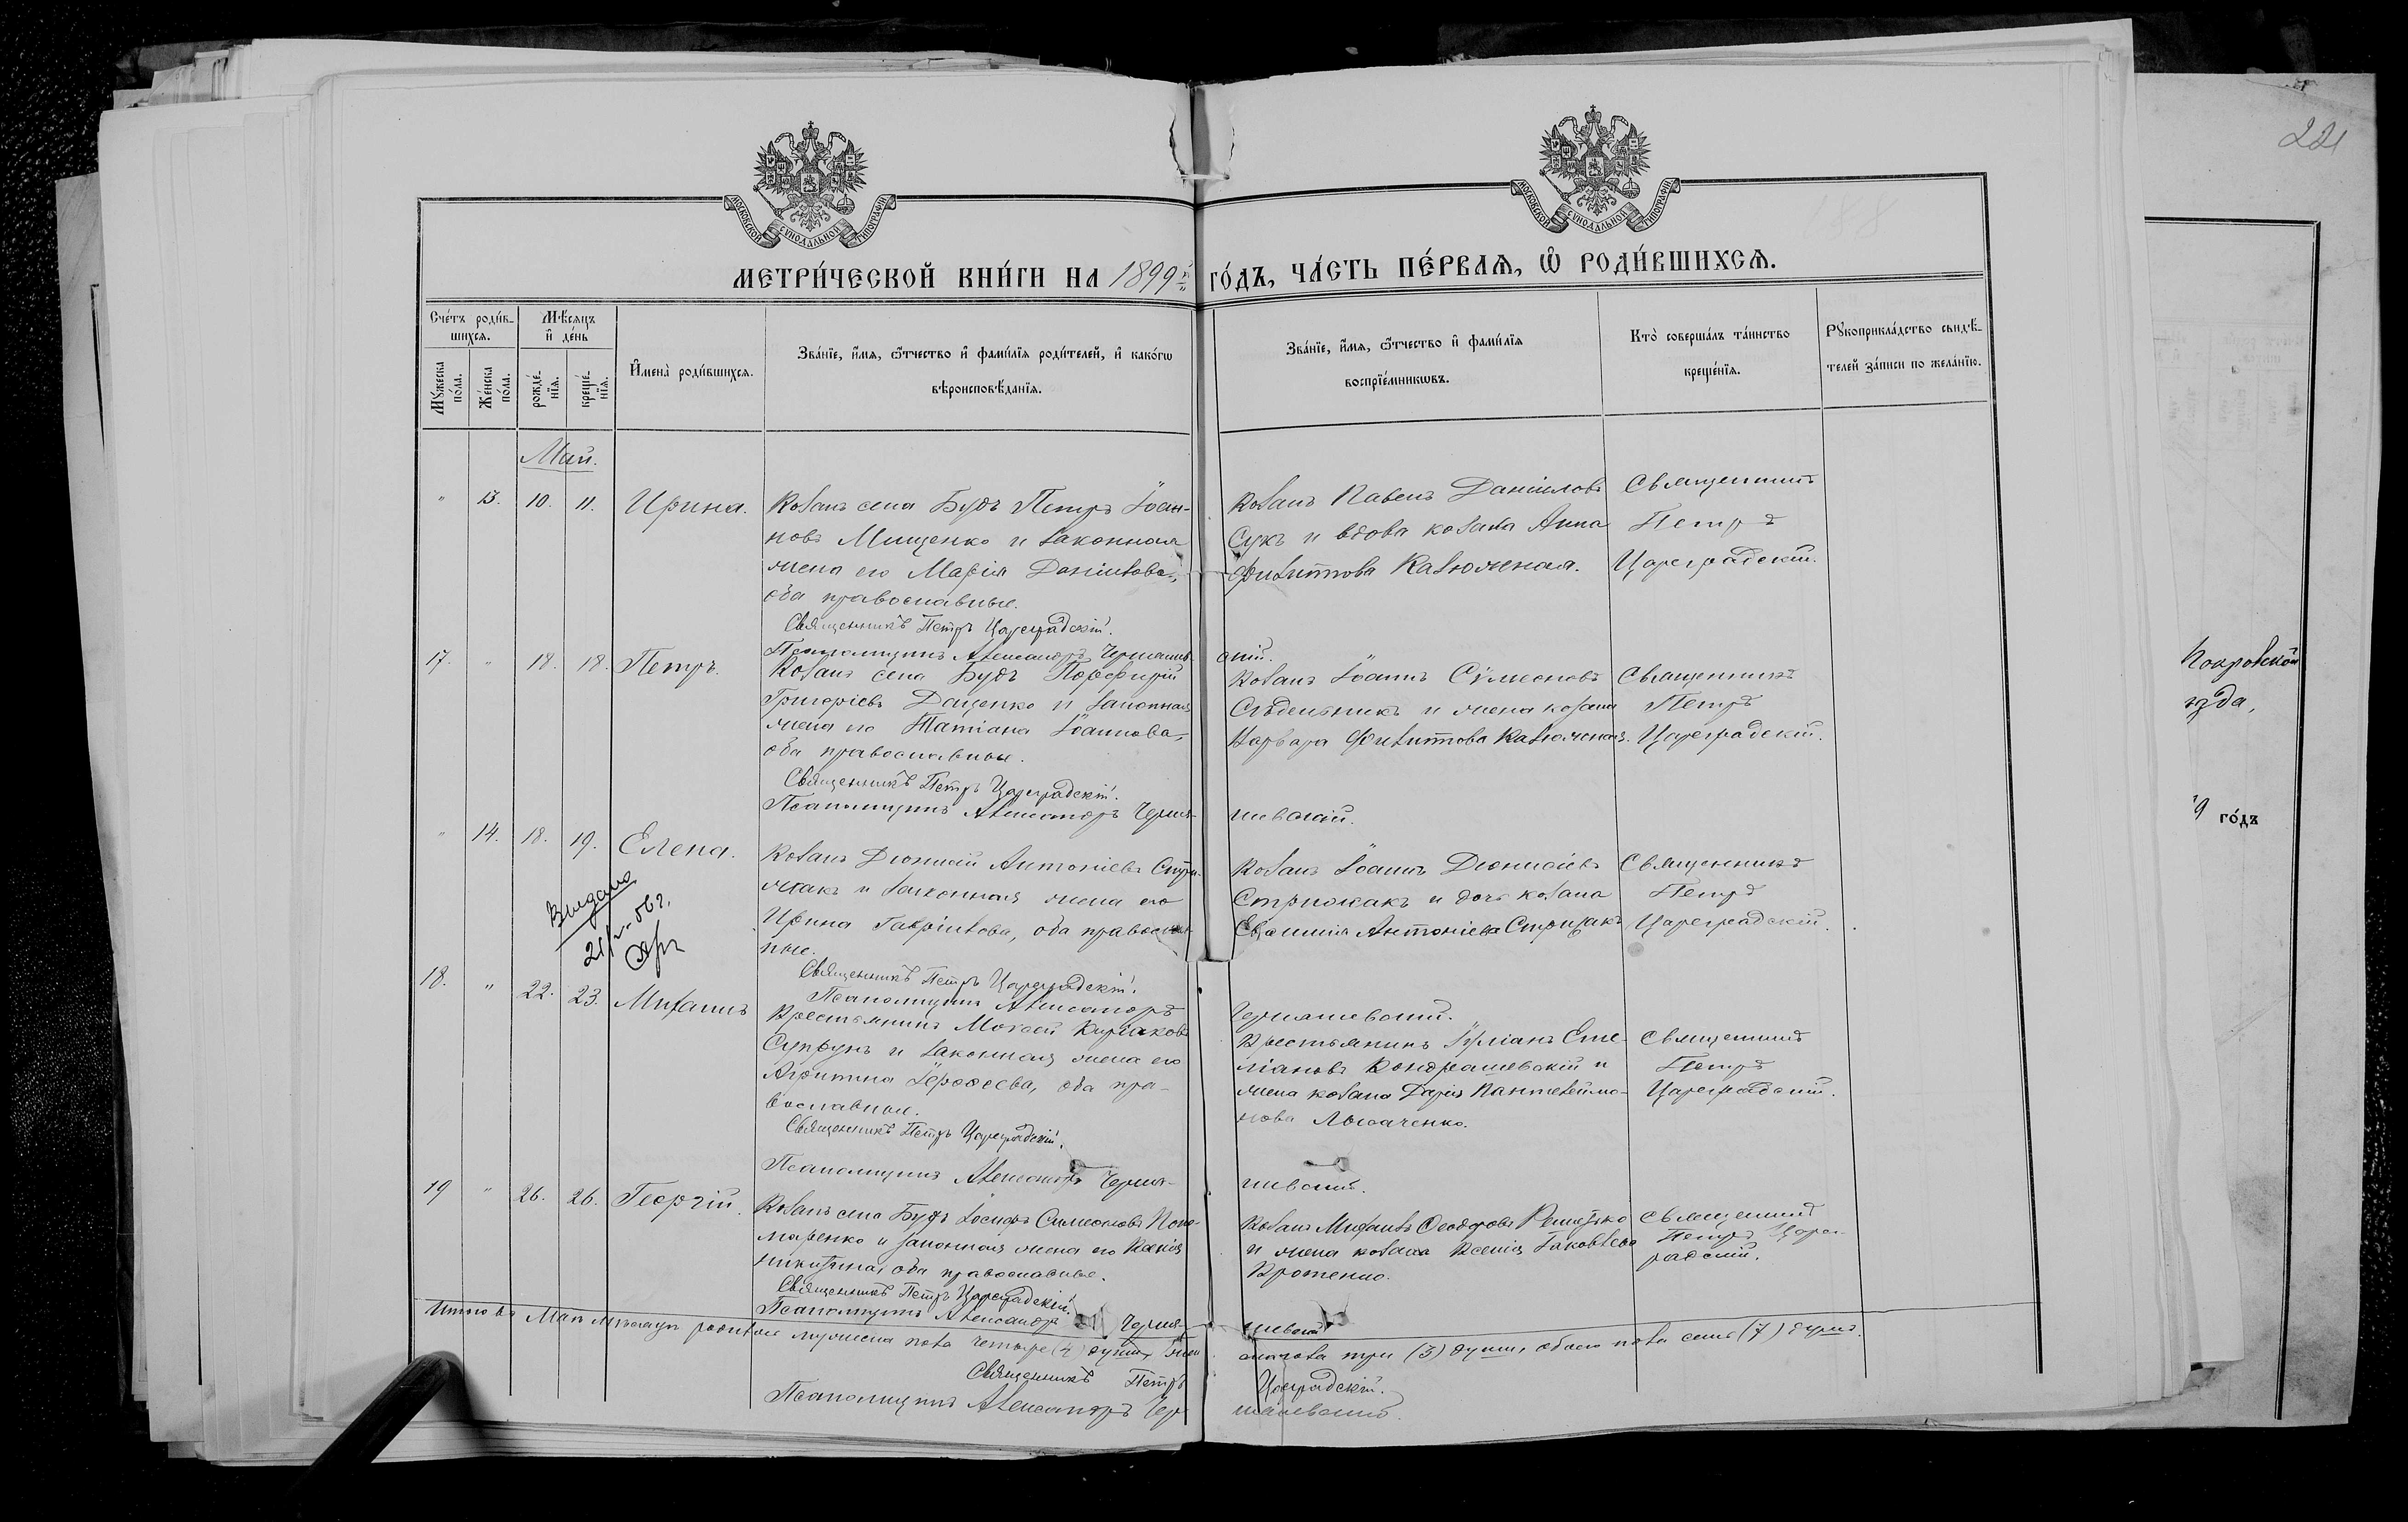 221
188
МОСКОВСКОЙ СУНОДАЛЬНОЙ ТИПОГРАФІИ
МОСКОВСКОЙ СУНОДАЛЬНОЙ ТИПОГРАФІИ
МЕТРИ́ЧЕСКОЙ КНИ́ГИ НА 1899й ГО́ДЪ, ЧА́СТЬ ПЕ́РВАѦ, Ѡ РОДИ́ВШИХСѦ.
Сче́тъ роди́в-
шихсѧ.
Мꙋ́жеска по́ла.
Же́нска по́ла.
Мѣ́сѧцъ
и҆ де́нь
рожде́-
нїѧ.
креще́-
нїѧ.
И҆мена̀ роди́вшихсѧ.
Зва́нїе, и҆́мѧ, ѻ҆́тчество и҆ фами́лїѧ роди́телей, и҆ како́гѡ
вѣроисповѣ́данїѧ.
Зва́нїе, и҆́мѧ, ѻ҆́тчество и҆ фами́лїѧ
воспрїе́мникѡвъ.
Кто̀ соверша́лъ та́инство
креще́нїѧ.
Рꙋкоприкла́дство свидѣ́-
телей за́писи по жела́нїю.
Май.
" 13. 10. 11. Ирина.
Козакъ села Будъ Петръ Іоан-
новъ Мищенко и законная
жена его Марія Даніилова,
оба православные.
Священникъ Петръ Цареградскій.
Псаломщикъ Александръ Чернышев-
скій.
Козакъ Павелъ Даніиловъ
Сукъ и вдова козака Анна
Филиппова Калюжная.
Священникъ
Петръ
Цареградскій.
17. " 18. 18. Петръ.
Козакъ села Будъ Порфирій
Григоріевъ Даценко и законная
жена его Татіана Іоаннова,
оба православные.
Священникъ Петръ Цареградскій.
Псаломщикъ Александръ Черны-
шевскій.
Козакъ Іоаннъ Сѵмеоновъ
и жена козака
Варвара Филиппова Калюжная.
Священникъ
Петръ
Цареградскій.
" 14. 18. 19. Елена.
Выдано
Козакъ Діонисій Антоніевъ Стри-
жакъ и законная жена его
Ирина Гавріилова, оба православ-
ные.
Священникъ Петръ Цареградскій.
Псаломщикъ Александръ
Чернышевскій.
Козакъ Іоаннъ Діонисіевъ
Стрижакъ и дочь козака
Евфимія Антоніева Стрижакъ
Священникъ
Петръ
Цареградскій.
18. " 22. 23. Михаилъ
Крестьянинъ Моисей Киріаковъ
Супрунъ и законная жена его
Агрипина Іероѳеева, оба пра-
вославные.
Священникъ Петръ Цареградскій.
Псаломщикъ Александръ Черны-
шевскій.
Крестьянинъ Іуліанъ Еме-
ліановъ Кондрашевскій и
жена козака Дарія Пантелеимо-
нова Лысаченко.
Священникъ
Петръ
Цареградскій.
19 " 26. 26. Георгій.
Козакъ села Будъ Іосифъ Симеоновъ Поно-
маренко и законная жена его Ксенія
Никитина, оба православные.
Священникъ Петръ Цареградскій.
Псаломщикъ Александръ Черны-
шевскій
Козакъ Михаилъ Ѳеодоровъ Решетько
и жена козака Ксенія Іаковлева
Кротенко.
Священникъ
Петръ Царег-
радскій.
Итого въ Маѣ мѣсяцѣ родилось мужеска пола четыре (4) души, жен-
скаго пола три (3) души, обоего пола семь (7) душъ.
Священникъ Петръ Цареградскій.
Псаломщикъ Александръ Чер-
нышевскій.
Покровской
ѣзда,
9 го́дъ